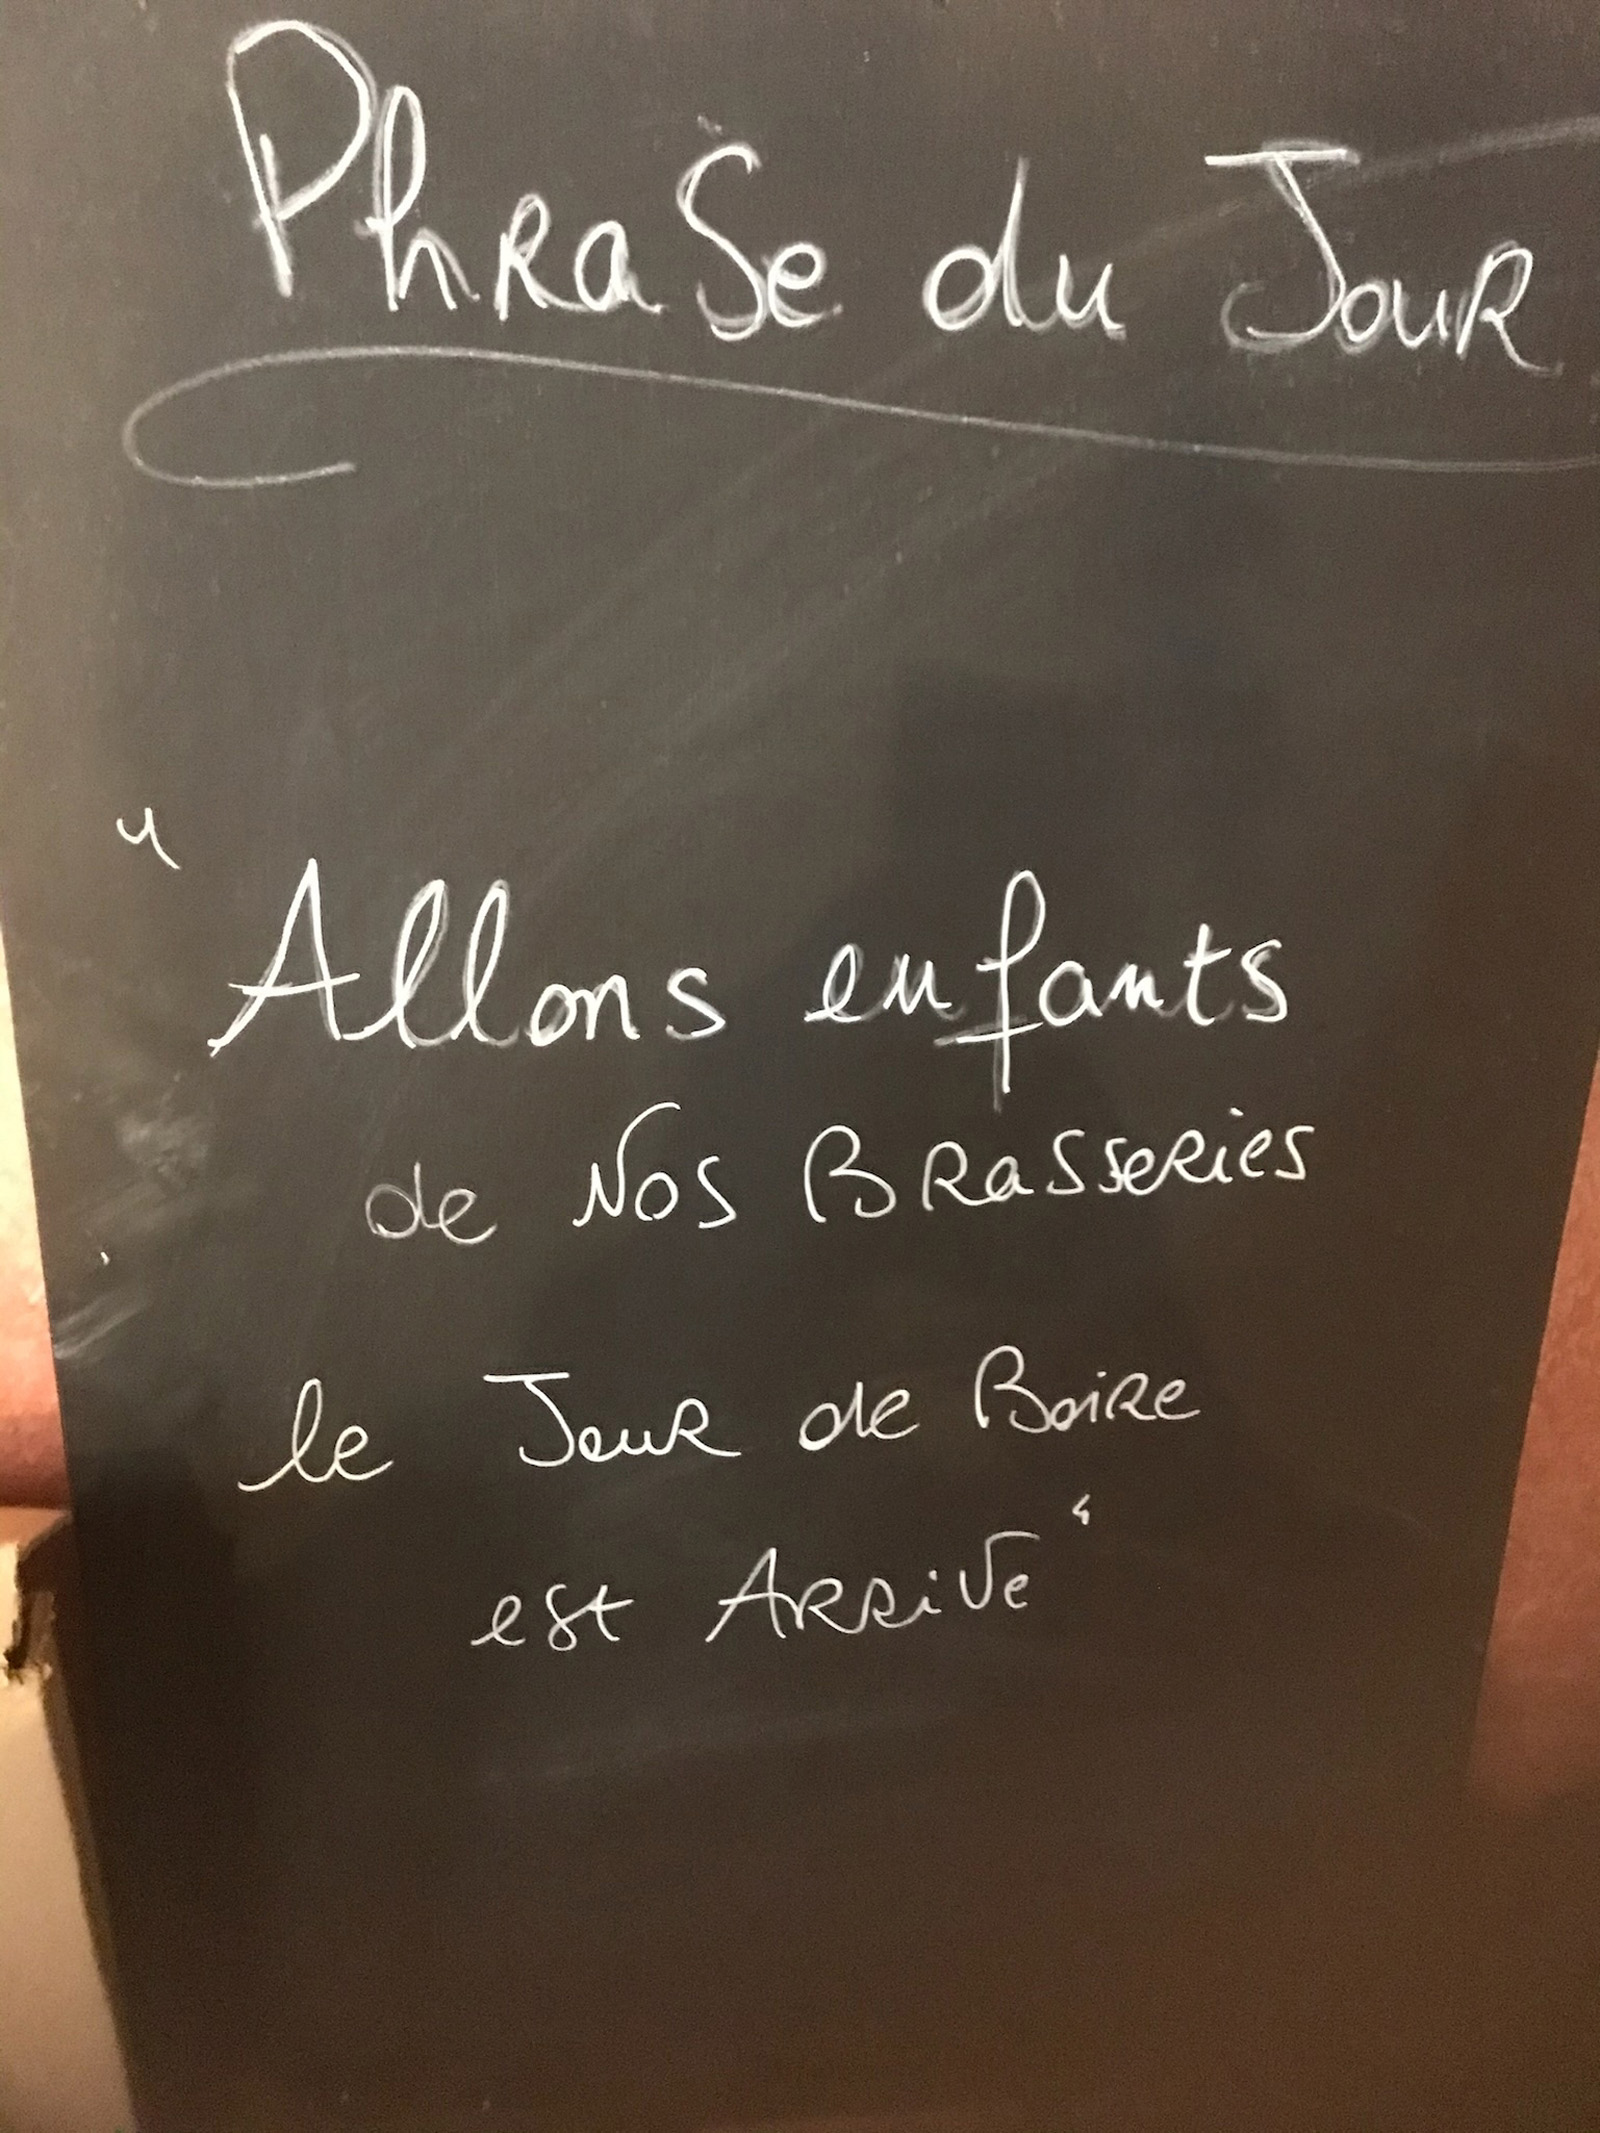 Phrase du Jour
" Allons enfants
de Nos Brasseries
le Jour de Boire
est Arrivé "